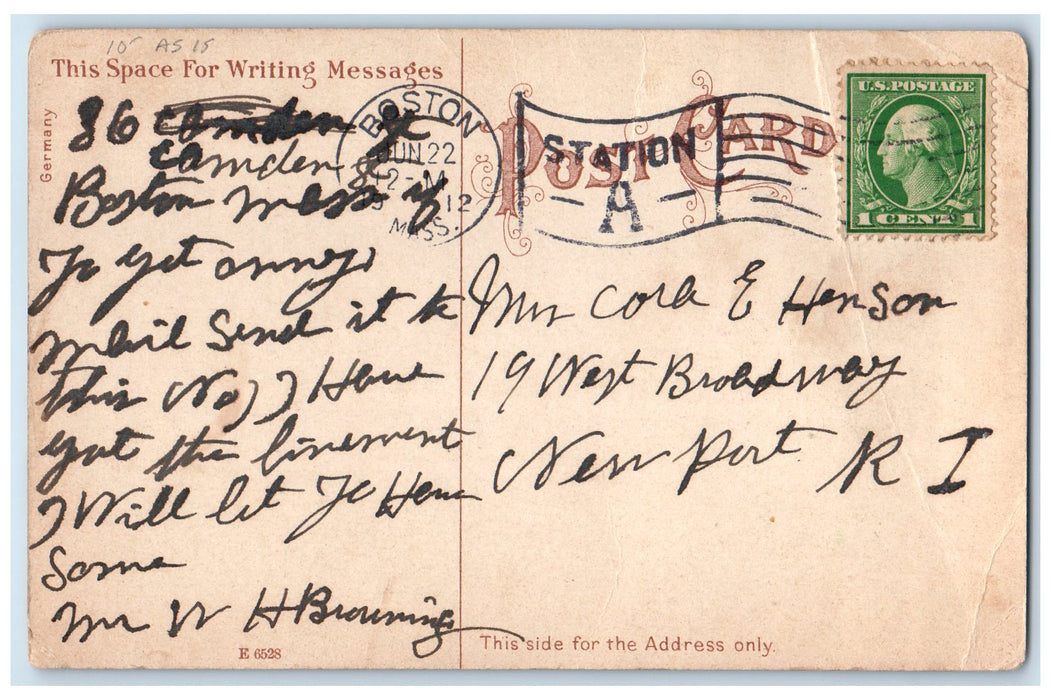 10- AS 15
This Space For Writing Messages
Germany
86 Camden St
Camden St
Boston Mass if
Yo get anny
mail Send it to
this No, I Have
got the linement
I Will let Yo Have
Some
Mr W H Browning
E 6528
BOSTON
JUN 22
12-M
1912
MASS.
STATION
A
POST CARD
U.S. POSTAGE
1 CENT 1
Mrs Cora E Henson
19 West Broadway
New Port R I
This side for the Address only.